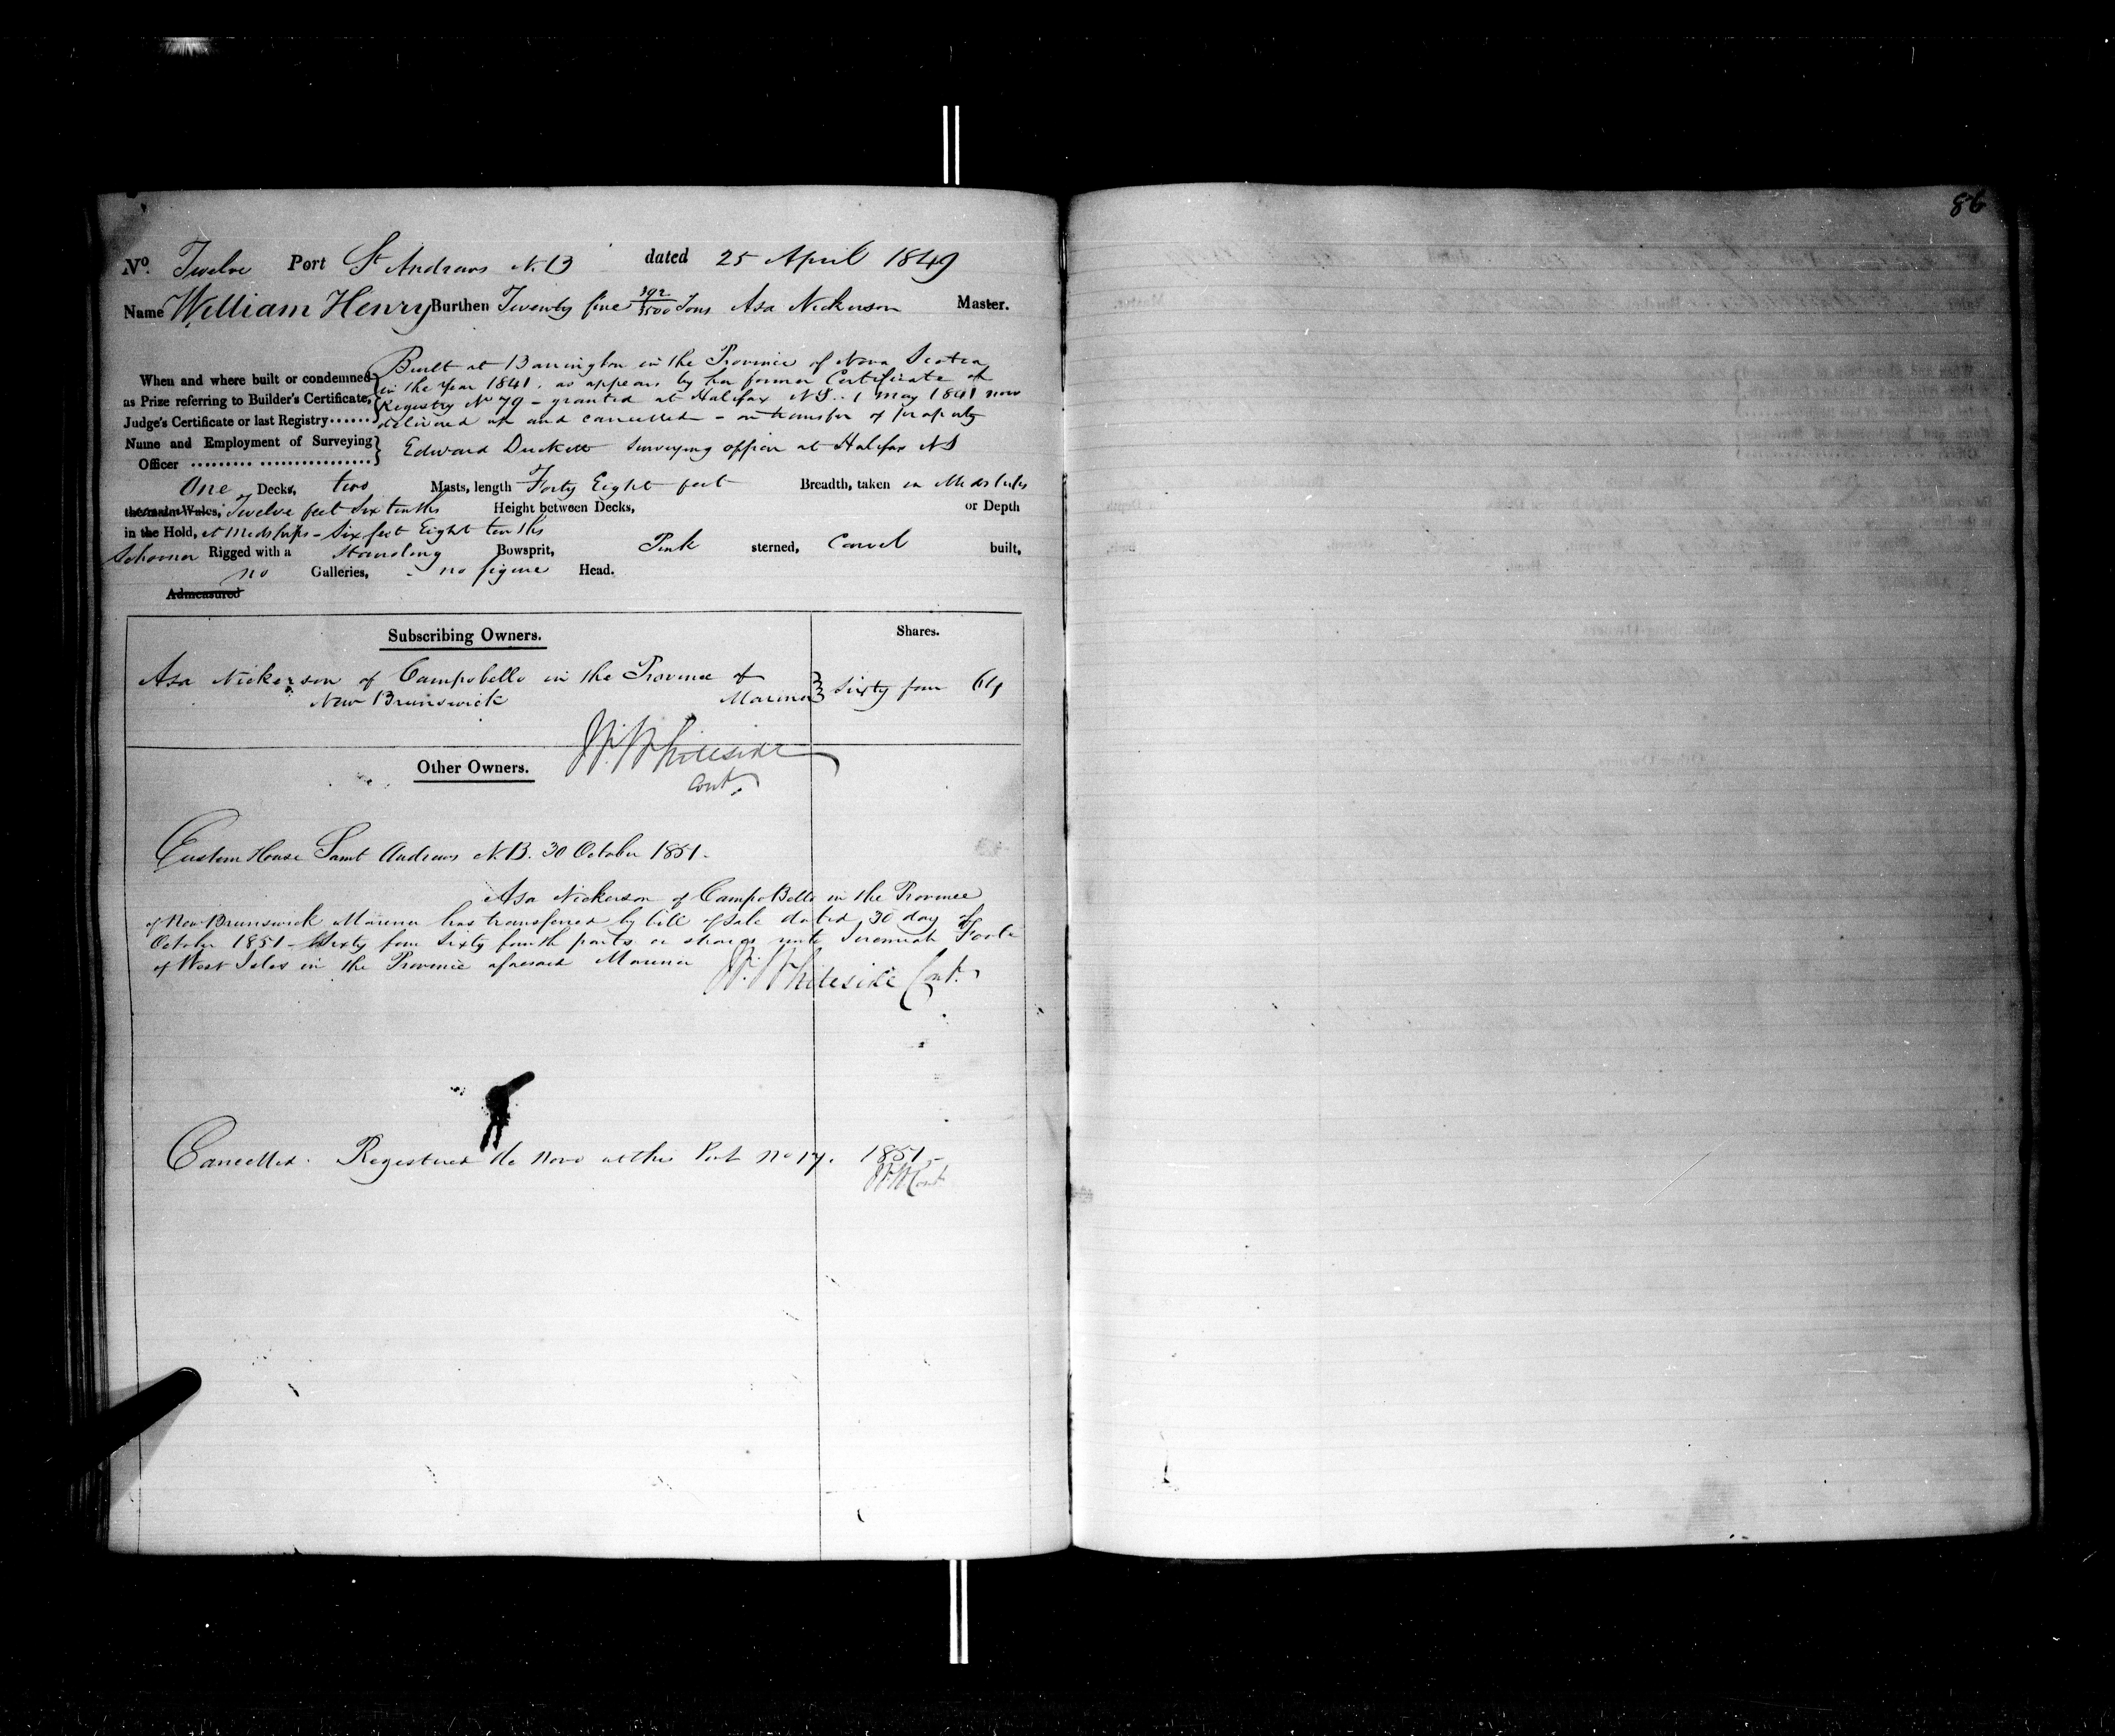 86
No. Twelve Port St Andrews N.B dated 25 April 1849
Name William Henry Burthen Twenty five 392/3500 Tons Asa Nickerson Master.
Built at Barrington in the Province of Nova Scotia
When and where built or condemned in the year 1841. as appears by her former Certificate of
as Prize referring to Builder's Certificate, Registry No 79 - granted at Halifax NS.. 1 May 1841 now
Judge's Certificate or last Registry...... delivered up and cancelled - on transfer of property
Name and Employment of Surveying
Officer ......... ................ Edward Duckett Surveying officer at Halifax NS
One Decks, two Masts, length Forty Eight feet Breadth, taken in Midships
the main Wales, Twelve feet Six tenths Height between Decks, or Depth
in the Hold, at Midships - Six feet Eight tenths
Schooner Rigged with a Standing Bowsprit, Pink sterned, Carvel built,
no Galleries, - no figure Head.
Admeasured
Subscribing Owners. Shares.
Asa Nickerson of Campobello in the Province of
New Brunswick Mariner Sixty four 64
W. Whiteside
Cont.
Other Owners.
Custom House Saint Andrews N.B. 30 October 1851.
Asa Nickerson of CampoBello in the Province
of New Brunswick Mariner has transferred by bill of sale dated 30 day of
October 1851 - Sixty four Sixty fourth parts or shares unto Jeremiah Foote
of West Isles in the Province aforesaid Mariner W. Whiteside Cont.
Cancelled. Registered de Novo at this Port No 17. 1851.-
WW Cont